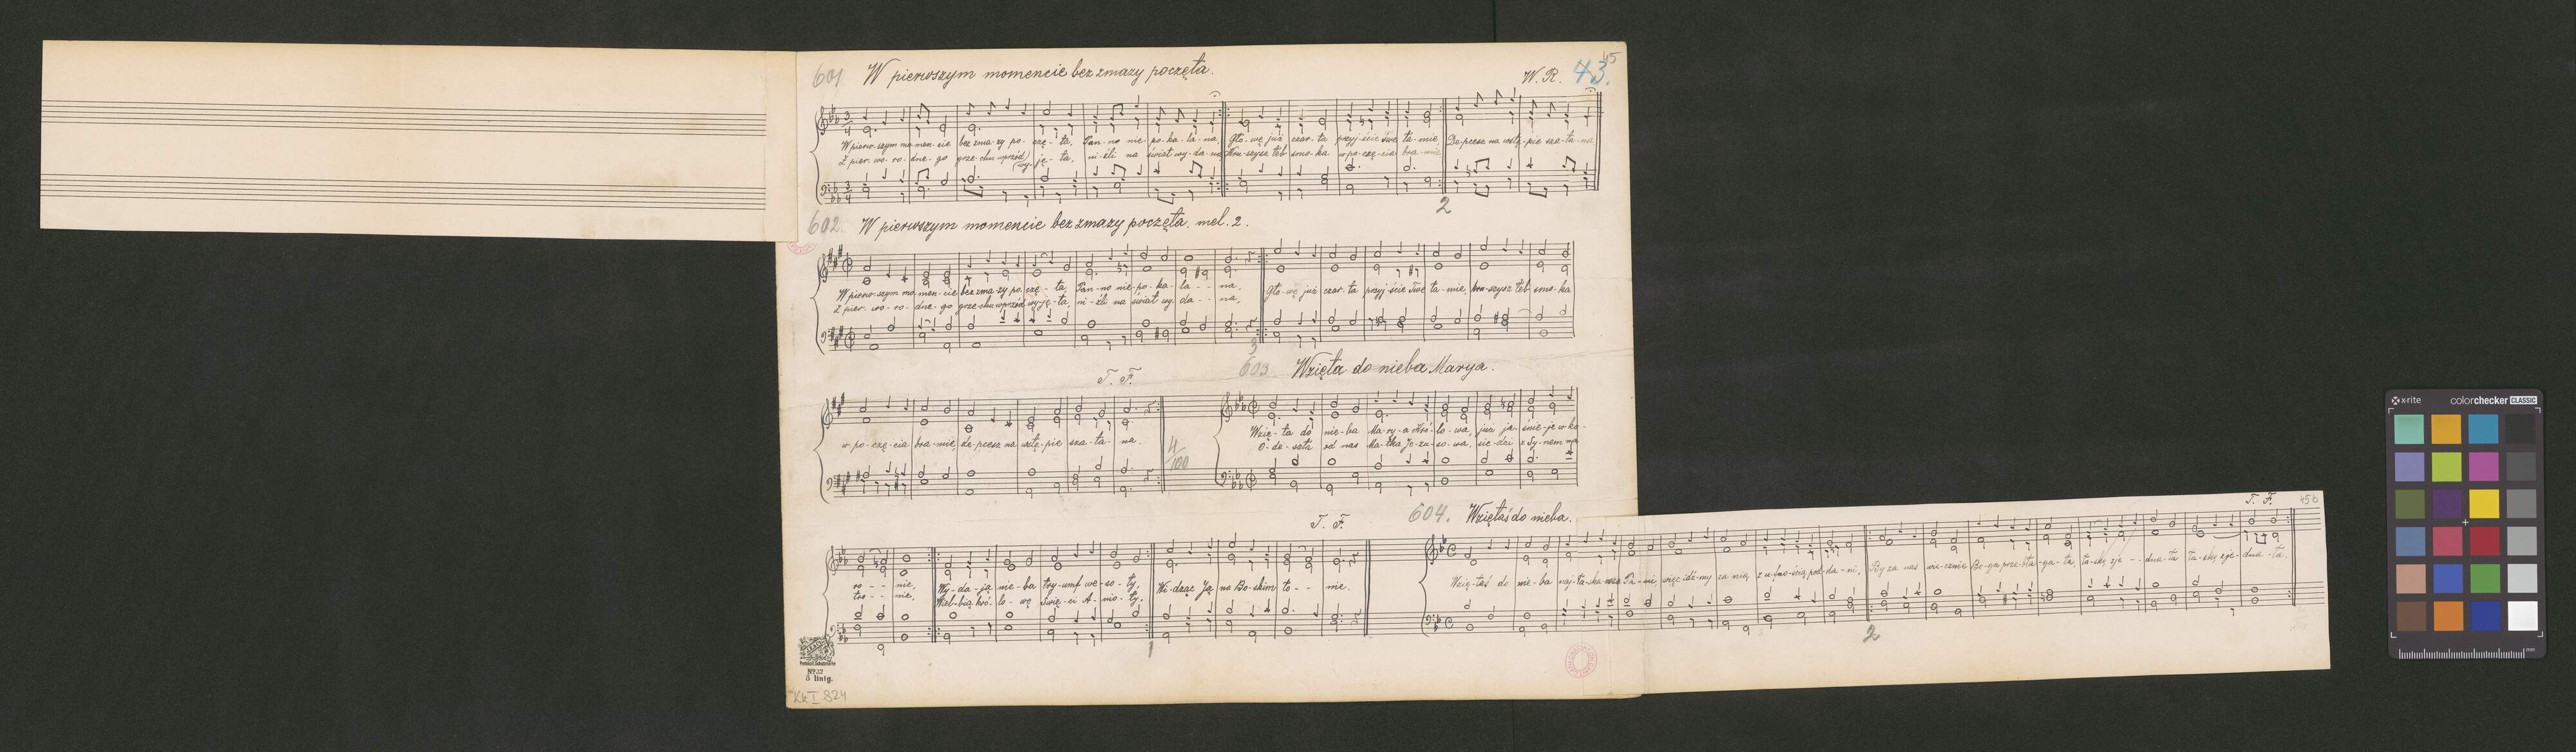 601 W pierwszym momencie bez zmazy poczęta.
W. R. 43. 45
W pierw-szym mo-men-cie bez zma-zy po-czę-ta, Pan-no nie-po-ka-la-na, Gło-wę już czar-ta przyj-ście Twe ta-mie, De-pcesz na wstę-pie sza-ta-na
Z pier-wo-ro-dne-go grze-chu wprzód wy-ję-ta, ni-żli na świat wy-da-na, Kru-szysz łeb smo-ka w po-czę-cia bra-mie
2
602. W pierwszym momencie bez zmazy poczęta. mel. 2.
W pierw-szym mo-men-cie bez zma-zy po-czę-ta, Pan-no nie-po-ka-la-na, Gło-wę już czar-ta przyj-ście Twe ta-mie, kru-szysz łeb smo-ka
Z pier-wo-ro-dne-go grze-chu wprzód wy-ję-ta, ni-żli na świat wy-da-na,
3
T. F.
603 Wzięta do nieba Marya.
w po-czę-cia bra-mie, de-pcesz na wstę-pie sza-ta-na.
4/100
Wzię-ta do nie-ba Ma-ry-a Kró-lo-wa, już ja-śnie-je w ko-
O-de-szła od nas Ma-tka Je-zu-so-wa, sie-dzi z Sy-nem na
T. F.
604. Wziętaś do nieba.
T. F.
45b
ro--nie, Wy-da-ją nie-ba try-umf we-so-ły, Wi-dząc Ją na Bo-skim to--nie.
tro--nie, Wiel-bią kró-lo-wę Świę-ci A-nio-ły,
1
Wzię-taś do nie-ba naj-ła-ska-wsza Pa-ni, więc idź-my za nią, z u-fno-ścią pod-da-ni, By za nas wie-cznie Bo-ga prze-bła-ga-ła, ła-skę zje--dna-ła ła-skę zje-dna-ła.
2
Nº 32
5 linig.
KK I 824
x-rite colorchecker CLASSIC
mm